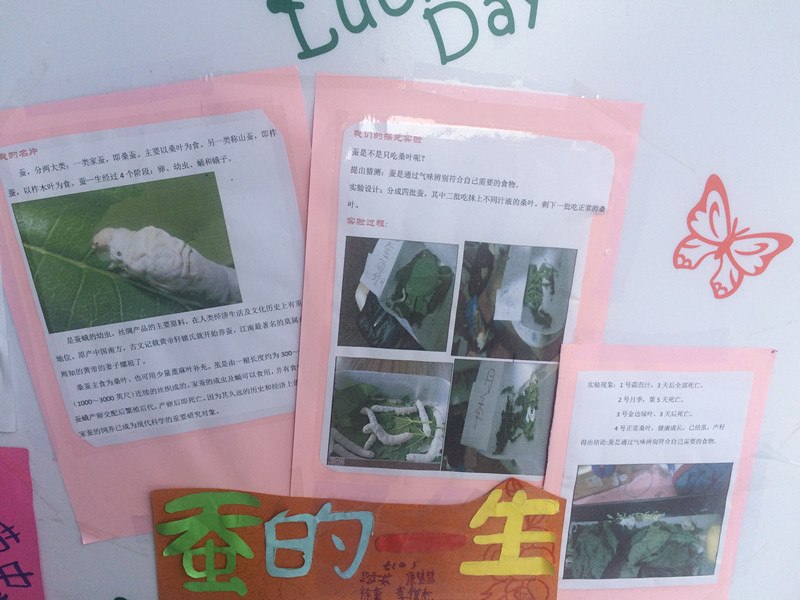 Day
我的名片
蚕，分两大类：一类家蚕，即桑蚕。主要以桑叶为食。另一类称山蚕，即柞
蚕，以柞木叶为食。蚕一生经过4个阶段：卵、幼虫、蛹和蛾子。
是蚕蛾的幼虫，丝绸产品的主要原料，在人类经济生活及文化历史上有重
地位。原产中国南方，古文记载黄帝轩辕氏就开始养蚕，江南最著名的莫属
周知的黄帝的妻子嫘祖了。
桑蚕主食为桑叶，也可用少量莴麻叶补充。茧是由一根长度约为300—
（1000～3000英尺）连续的丝织成的。家蚕的成虫及蛹可以食用，并有食
蚕蛾产卵交配后繁殖后代，产卵后即死亡。因为其久远的历史和经济上的
家蚕的饲养已成为现代科学的重要研究对象。
我们的探究实验
蚕是不是只吃桑叶呢？
提出猜测：蚕是通过气味辨别符合自己需要的食物。
实验设计：分成四批蚕，其中二批吃抹上不同汁液的桑叶，剩下一批吃正常的桑
叶。
实验过程：
实验现象：1号蒜苗汁，3天后全部死亡。
2号月季，第5天死亡。
3号金边绿叶，3天后死亡。
4号正常桑叶，健康成长，已结茧，产籽
得出结论:蚕是通过气味辨别符合自己需要的食物。
蚕的一生